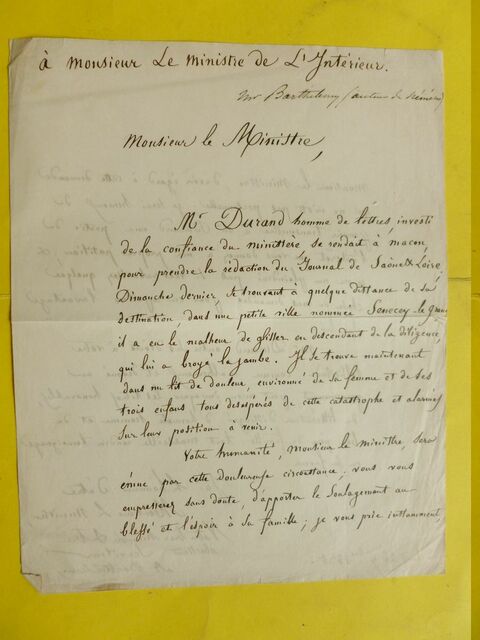 à Monsieur Le Ministre de L'Intérieur.
Mr Barthelemy (auteur de Némésis)
Monsieur le Ministre,
Mr Durand homme de lettres investi
de la confiance du ministère se rendait à macon,
pour prendre la rédaction du Journal de Saône & Loire,
Dimanche dernier, se trouvant à quelque distance de sa
destination dans une petite ville nommée Senecey-le-grand
il a eu le malheur de glisser en descendant de la diligence
qui lui a broyé la jambe. Il se trouve maintenant
dans un lit de douleur, environné de sa femme et de ses
trois enfans tous désespérés de cette catastrophe et alarmés
sur leur position à venir.
Votre humanité, Monsieur le ministre, sera
émue par cette douloureuse circonstance. vous vous
empresserez sans doute, d'apporter le soulagement au
blessé et l'espoir à sa famille; je vous prie instamment,